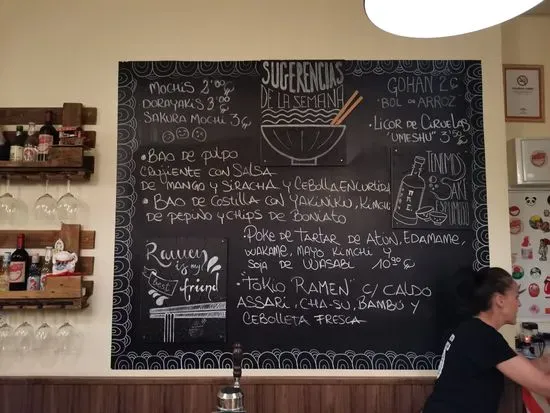 SUGERENCIAS
DE LA SEMANA
MOCHIS 2'00
DORAYAKIS 3'00
SAKURA MOCHI 3€
GOHAN 2€
"BOL DE ARROZ"
LICOR DE CIRUELAS
"UMESHU" 3'50
• BAO DE PULPO
CRUJIENTE CON SALSA
DE MANGO Y SIRACHA Y CEBOLLA ENCURTIDA
• BAO DE COSTILLA CON YAKINIKU, KIMCHI
DE PEPINO Y CHIPS DE BONIATO
POKE DE TARTAR DE ATÚN, EDAMAME,
WAKAME, MAYO KIMCHI Y
SOJA DE WASABI 10'90€
• "TOKIO RAMEN" C/ CALDO
ASSARI, CHA-SU, BAMBÚ Y
CEBOLLETA FRESCA
Ramen
is my
best
friend
SAKE